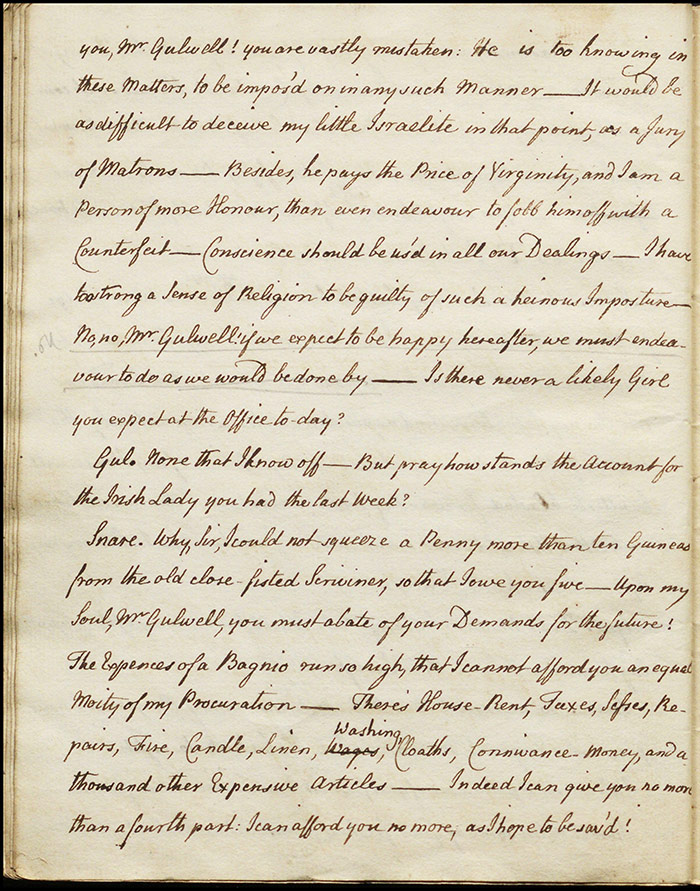 you, Mr. Gulwell! you are vastly mistaken: He is too knowing in
these Matters, to be impos'd on in any such Manner — It would be
as difficult to deceive my little Israelite in that point, as a Jury
of Matrons — Besides, he pays the Price of Virginity, and I am a
Person of more Honour, than even endeavour to fobb him off with a
Counterfeit — Conscience should be us'd in all our Dealings — I have
too strong a Sense of Religion to be guilty of such a heinous Imposture —
No, no, Mr. Gulwell! if we expect to be happy hereafter, we must endea-
vour to do as we would be done by — Is there never a likely Girl
you expect at the Office to-day?
Gul. None that I know off — But pray how stands the Account for
the Irish Lady you had the last Week?
Snare. Why, Sir, I could not squeeze a Penny more than ten Guineas
from the old close-fisted Scriviner, so that I owe you five — Upon my
Soul, Mr. Gulwell, you must abate of your Demands for the future!
The Expences of a Bagnio run so high, that I cannot afford you an equal
Moity of my Procuration — There's House-Rent, Taxes, Sesses, Re-
Washing
pairs, Fire, Candle, Linen, Wages, Cloaths, Connivance-Money, and a
thousand other Expensive Articles — Indeed I can give you no more
than a fourth part: I can afford you no more, as I hope to be sav'd!